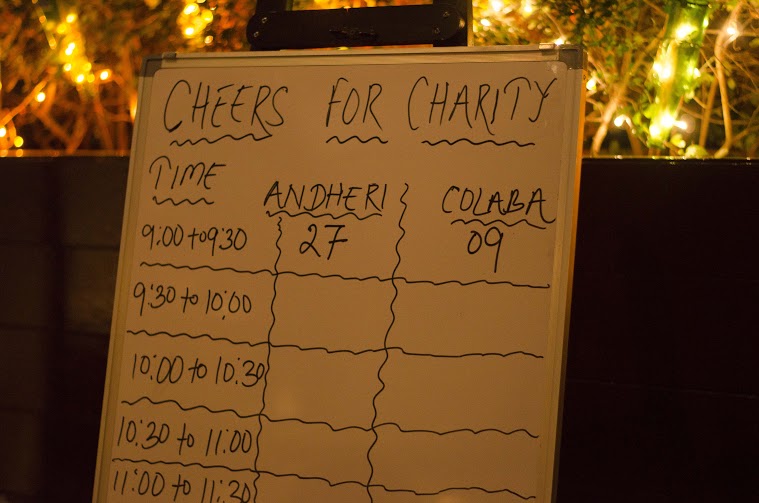 CHEERS FOR CHARITY
TIME ANDHERI COLABA
9:00 to 9:30 27 09
9:30 to 10:00
10:00 to 10:30
10:30 to 11:00
11:00 to 11:30